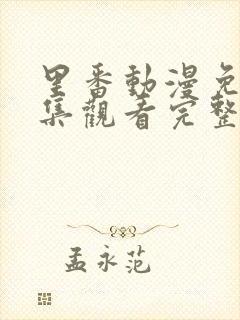 里番動漫免
集觀看完整
孟永范